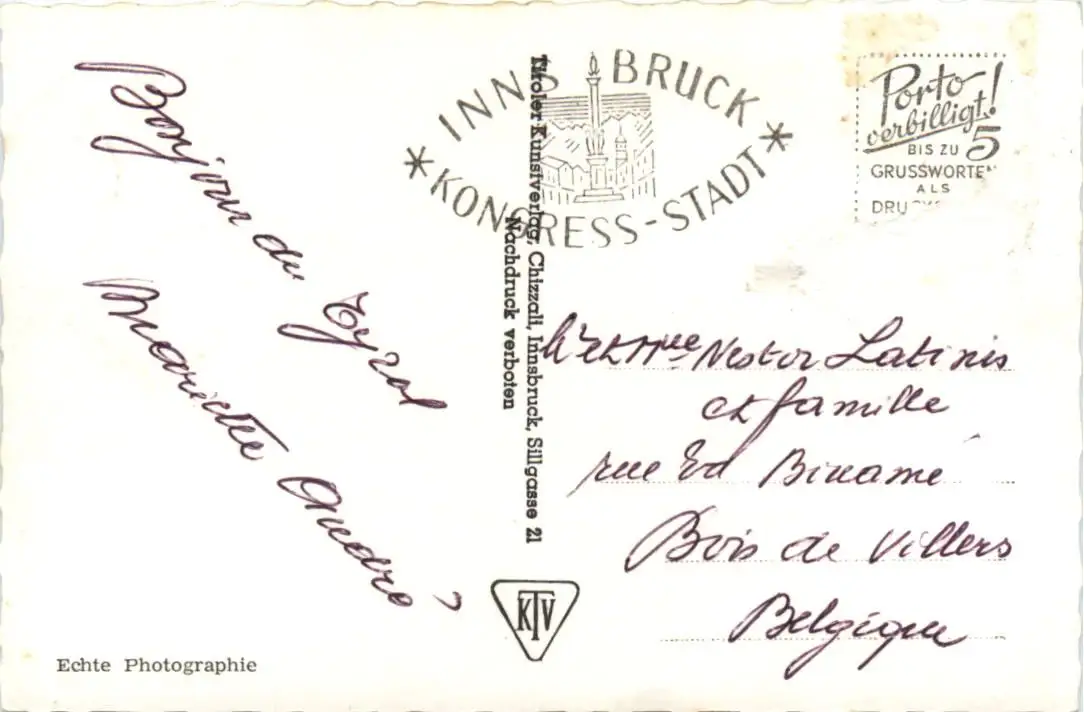 Bonjour du
Tyrol
Mariette André
INNSBRUCK
* KONGRESS-STADT *
Tiroler Kunstverlag, Chizzali, Innsbruck, Sillgasse 21
Nachdruck verboten
Porto
verbilligt!
BIS ZU 5
GRUSSWORTEN
ALS
Mr et Mme Nestor Latinis
et famille
rue Ed Binamé
Bois de Villers
Belgique
KTV
Echte Photographie